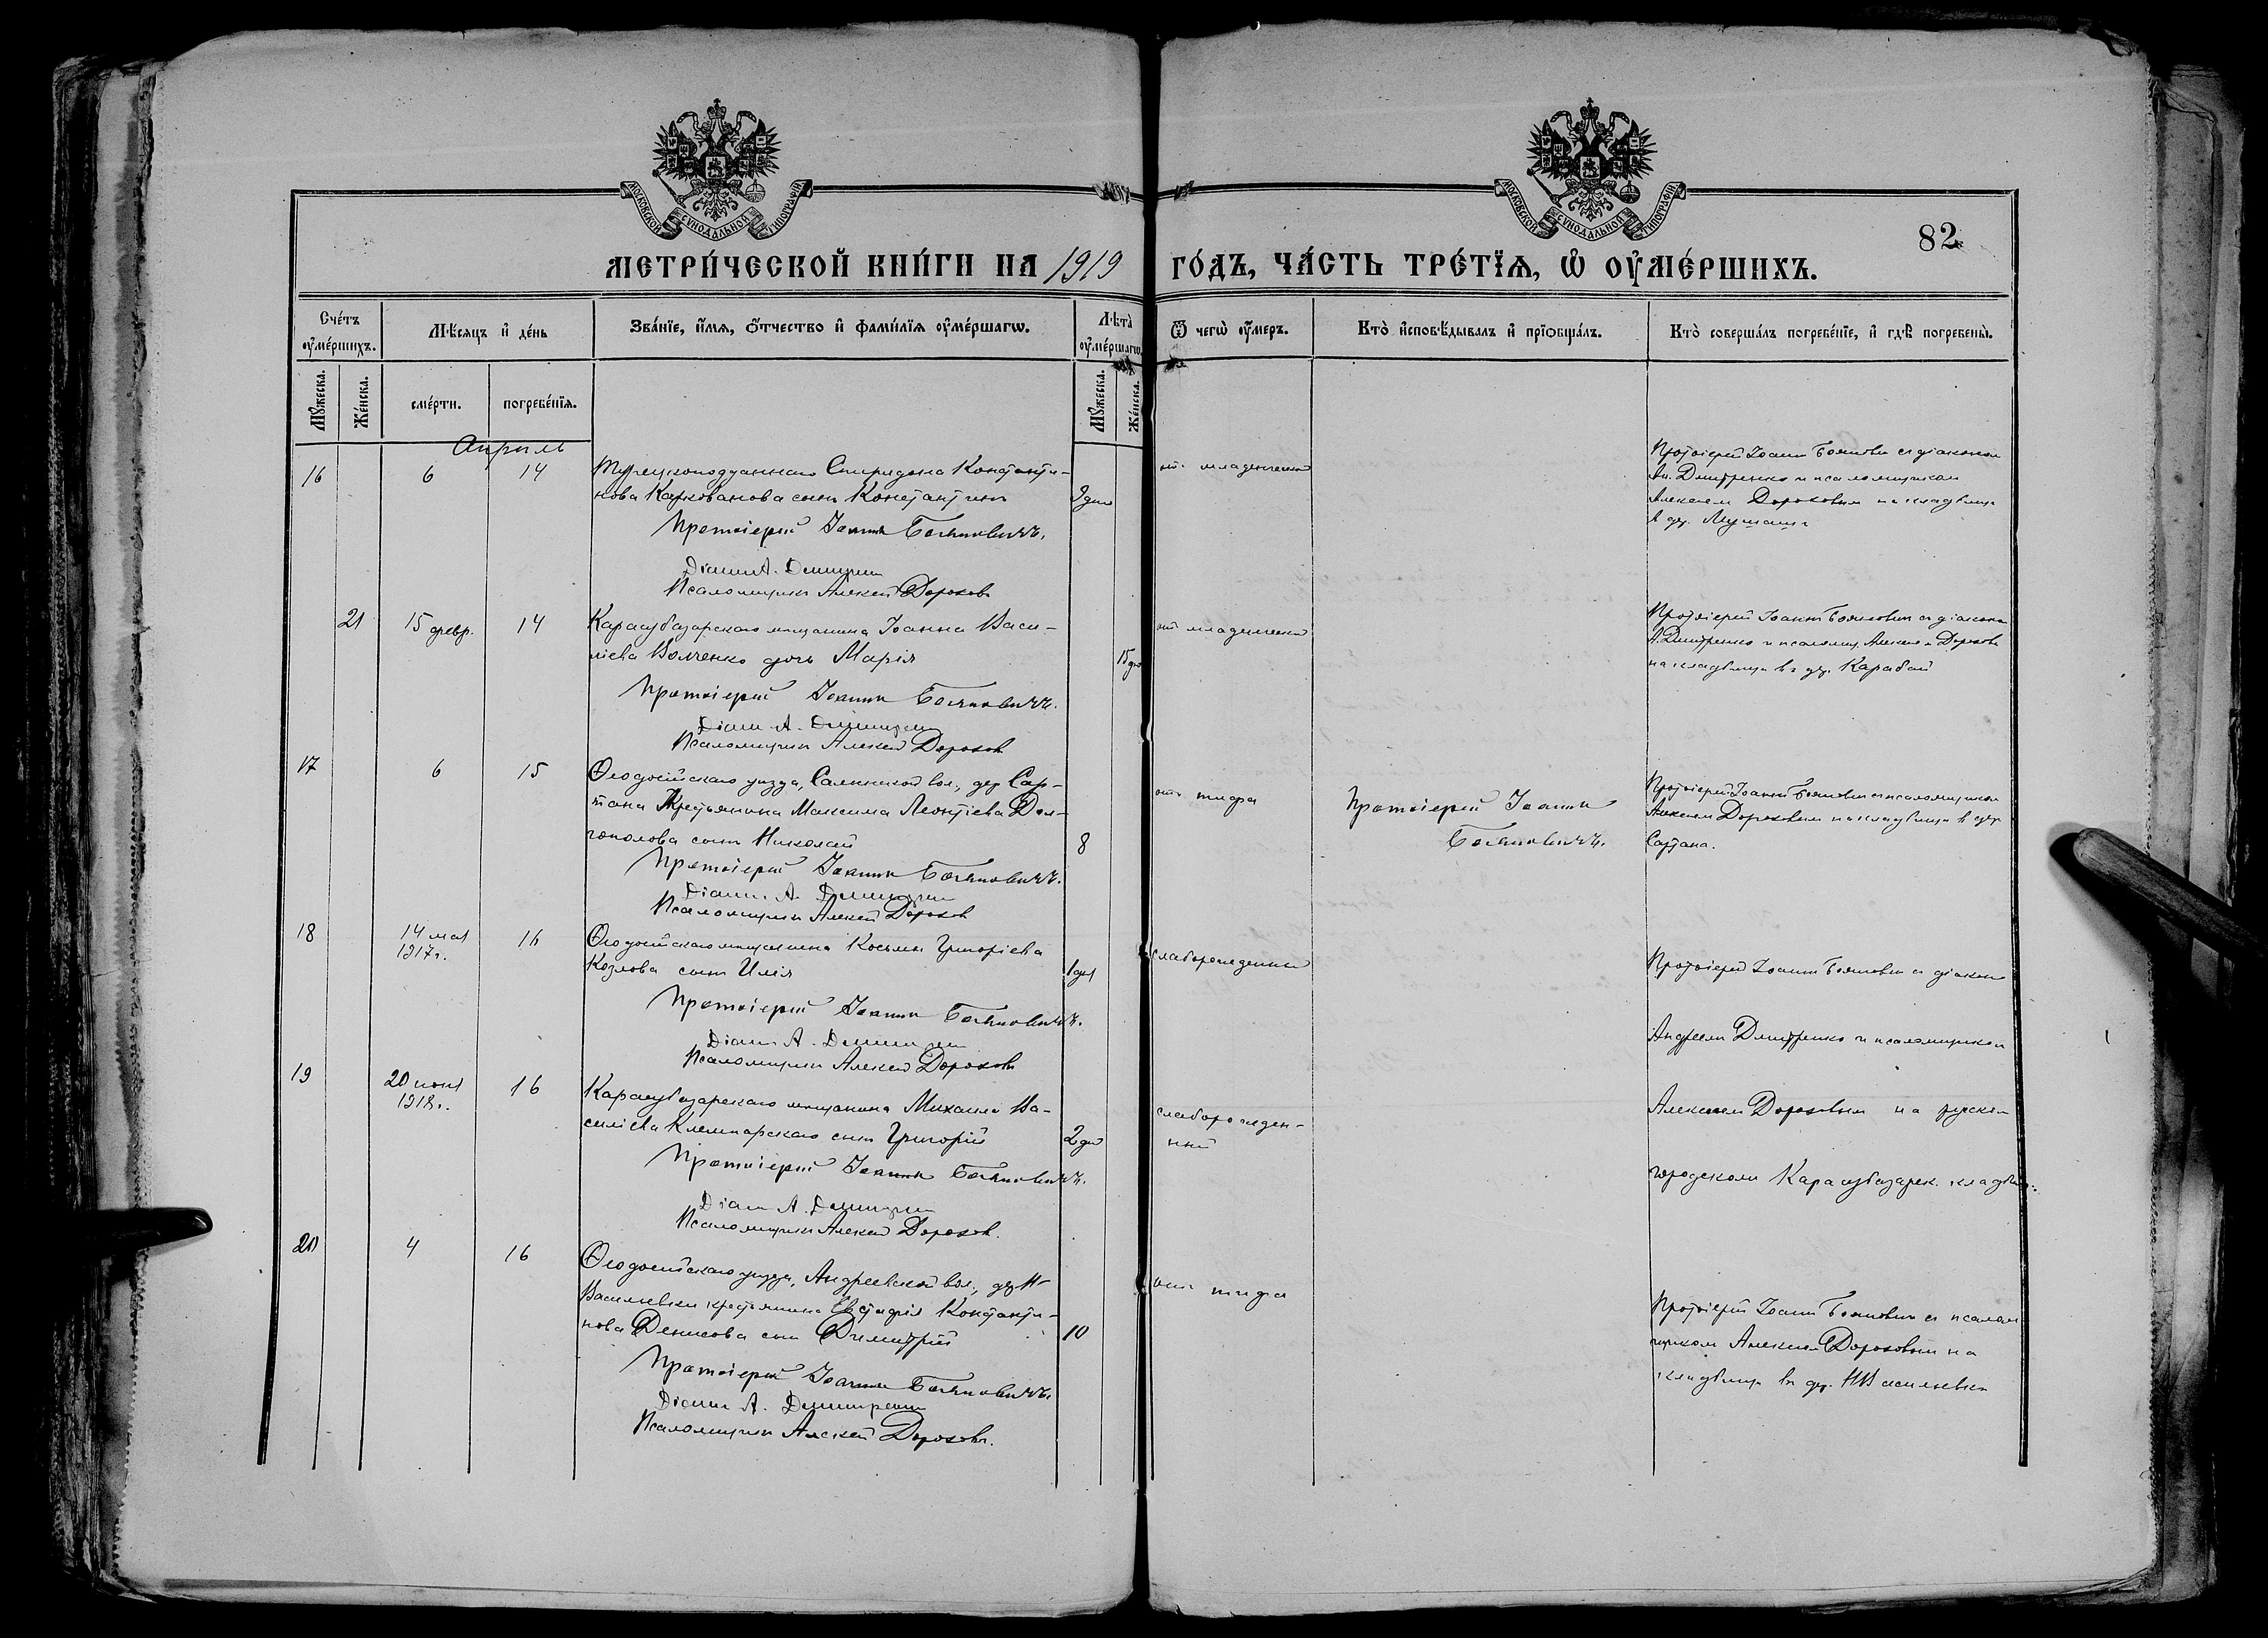 МОСКОВСКОЙ СѴНОДАЛЬНОЙ ТИПОГРАФІИ
МОСКОВСКОЙ СѴНОДАЛЬНОЙ ТИПОГРАФІИ
82
МЕТРИ́ЧЕСКОЙ КНИ́ГИ НА 1919 ГО́ДЪ, ЧА́СТЬ ТРЕ́ТЇѦ, Ѡ҆ ОУ҆МЕ́РШИХЪ.
Сче́тъ оу҆ме́ршихъ.
Мѣ́сяцъ и҆ де́нь
Зва́нїе, и҆́мѧ, ѻ҆́тчество и҆ фамѝлїѧ оу҆ме́ршагѡ.
Лѣ́та оу҆ме́ршагѡ.
Ѿ чегѡ̀ оу҆́меръ.
Кто̀ и҆сповѣ́дывалъ и҆ прїѻбща́лъ.
Кто̀ соверша́лъ погребе́нїе, и҆ гдѣ̀ погребены̀.
Мꙋ́жеска.
Же́нска.
сме́рти.
погребе́нїѧ.
Мꙋ́жеска.
Же́нска.
Апрель
16 6 14
Турецкоподданнаго Спиридона Константи-
нова Каркованова сынъ Константинъ
Протоіерей Іоаннъ Бояновичъ.
Діаконъ А. Дмитренко
Псаломщикъ Алексей Дороховъ
отъ младенческой
Протоіерей Іоаннъ Бояновичъ съ діакономъ
Ан. Дмитренко и псаломщикомъ
Алексеемъ Дороховымъ на кладбище
в дер.
21 15 февр. 14
Карасубазарскаго мещанина Іоанна Васи-
ліева Волченко дочь Марія
15 дн
Протоіерей Іоаннъ Бояновичъ.
Діаконъ А. Дмитренко
Псаломщикъ Алексей Дороховъ
отъ младенческой
Протоіерей Іоаннъ Бояновичъ съ діакономъ
А. Дмитренко и псаломщ. Алексеем Дорохов
на кладбище въ дер. Карабай
17 6 15
Ѳеодосійскаго уезда, Салынской вол., дер. Сар-
тана Крестьянина Максима Леонтіева Дол-
гополова сынъ Николай
8
Протоіерей Іоаннъ Бояновичъ.
Діаконъ А. Дмитренко
Псаломщикъ Алексей Дорохов
отъ тифа
Протоіерей Іоаннъ
Бояновичъ.
Протоіерей Іоаннъ Бояновичъ съ псаломщиком
Алексеем Дороховымъ на кладбище в дер.
Сартана.
18 14 мая 16
1917 г.
Ѳеодосійскаго мещанина Косьмы Григоріева
Козлова сынъ Илія
1 дня
Протоіерей Іоаннъ Бояновичъ.
Діаконъ А. Дмитренко
Псаломщикъ Алексей Дорохов
слаборожденный
Протоіерей Іоаннъ Бояновичъ съ діакон
Андреем Дмитренко и псаломщиком
19 20 1918 г. 16
Карасубазарскаго мещанина Михаила Ва-
силіева Клемпарскаго сынъ Григорій
2 дн
Протоіерей Іоаннъ Бояновичъ.
Діаконъ А. Дмитренко
Псаломщикъ Алексей Дорохов.
слаборожден-
ный
Алексеем Дороховым на русском
городском Карасубазарск. кладбищ.
20 4 16
Ѳеодосійскаго уезда, Андреевской вол., дер. Н-
Васильевки крестьянина Евстафія Константи-
нова Денисова сынъ Димитрій
10
Протоіерей Іоаннъ Бояновичъ.
Діаконъ А. Дмитренко
Псаломщикъ Алексей Дороховъ.
отъ тифа
Протоіерей Іоаннъ Бояновичъ съ псалом
щиком Алексеем Дороховым на
кладбище въ дер. Н Васильевка